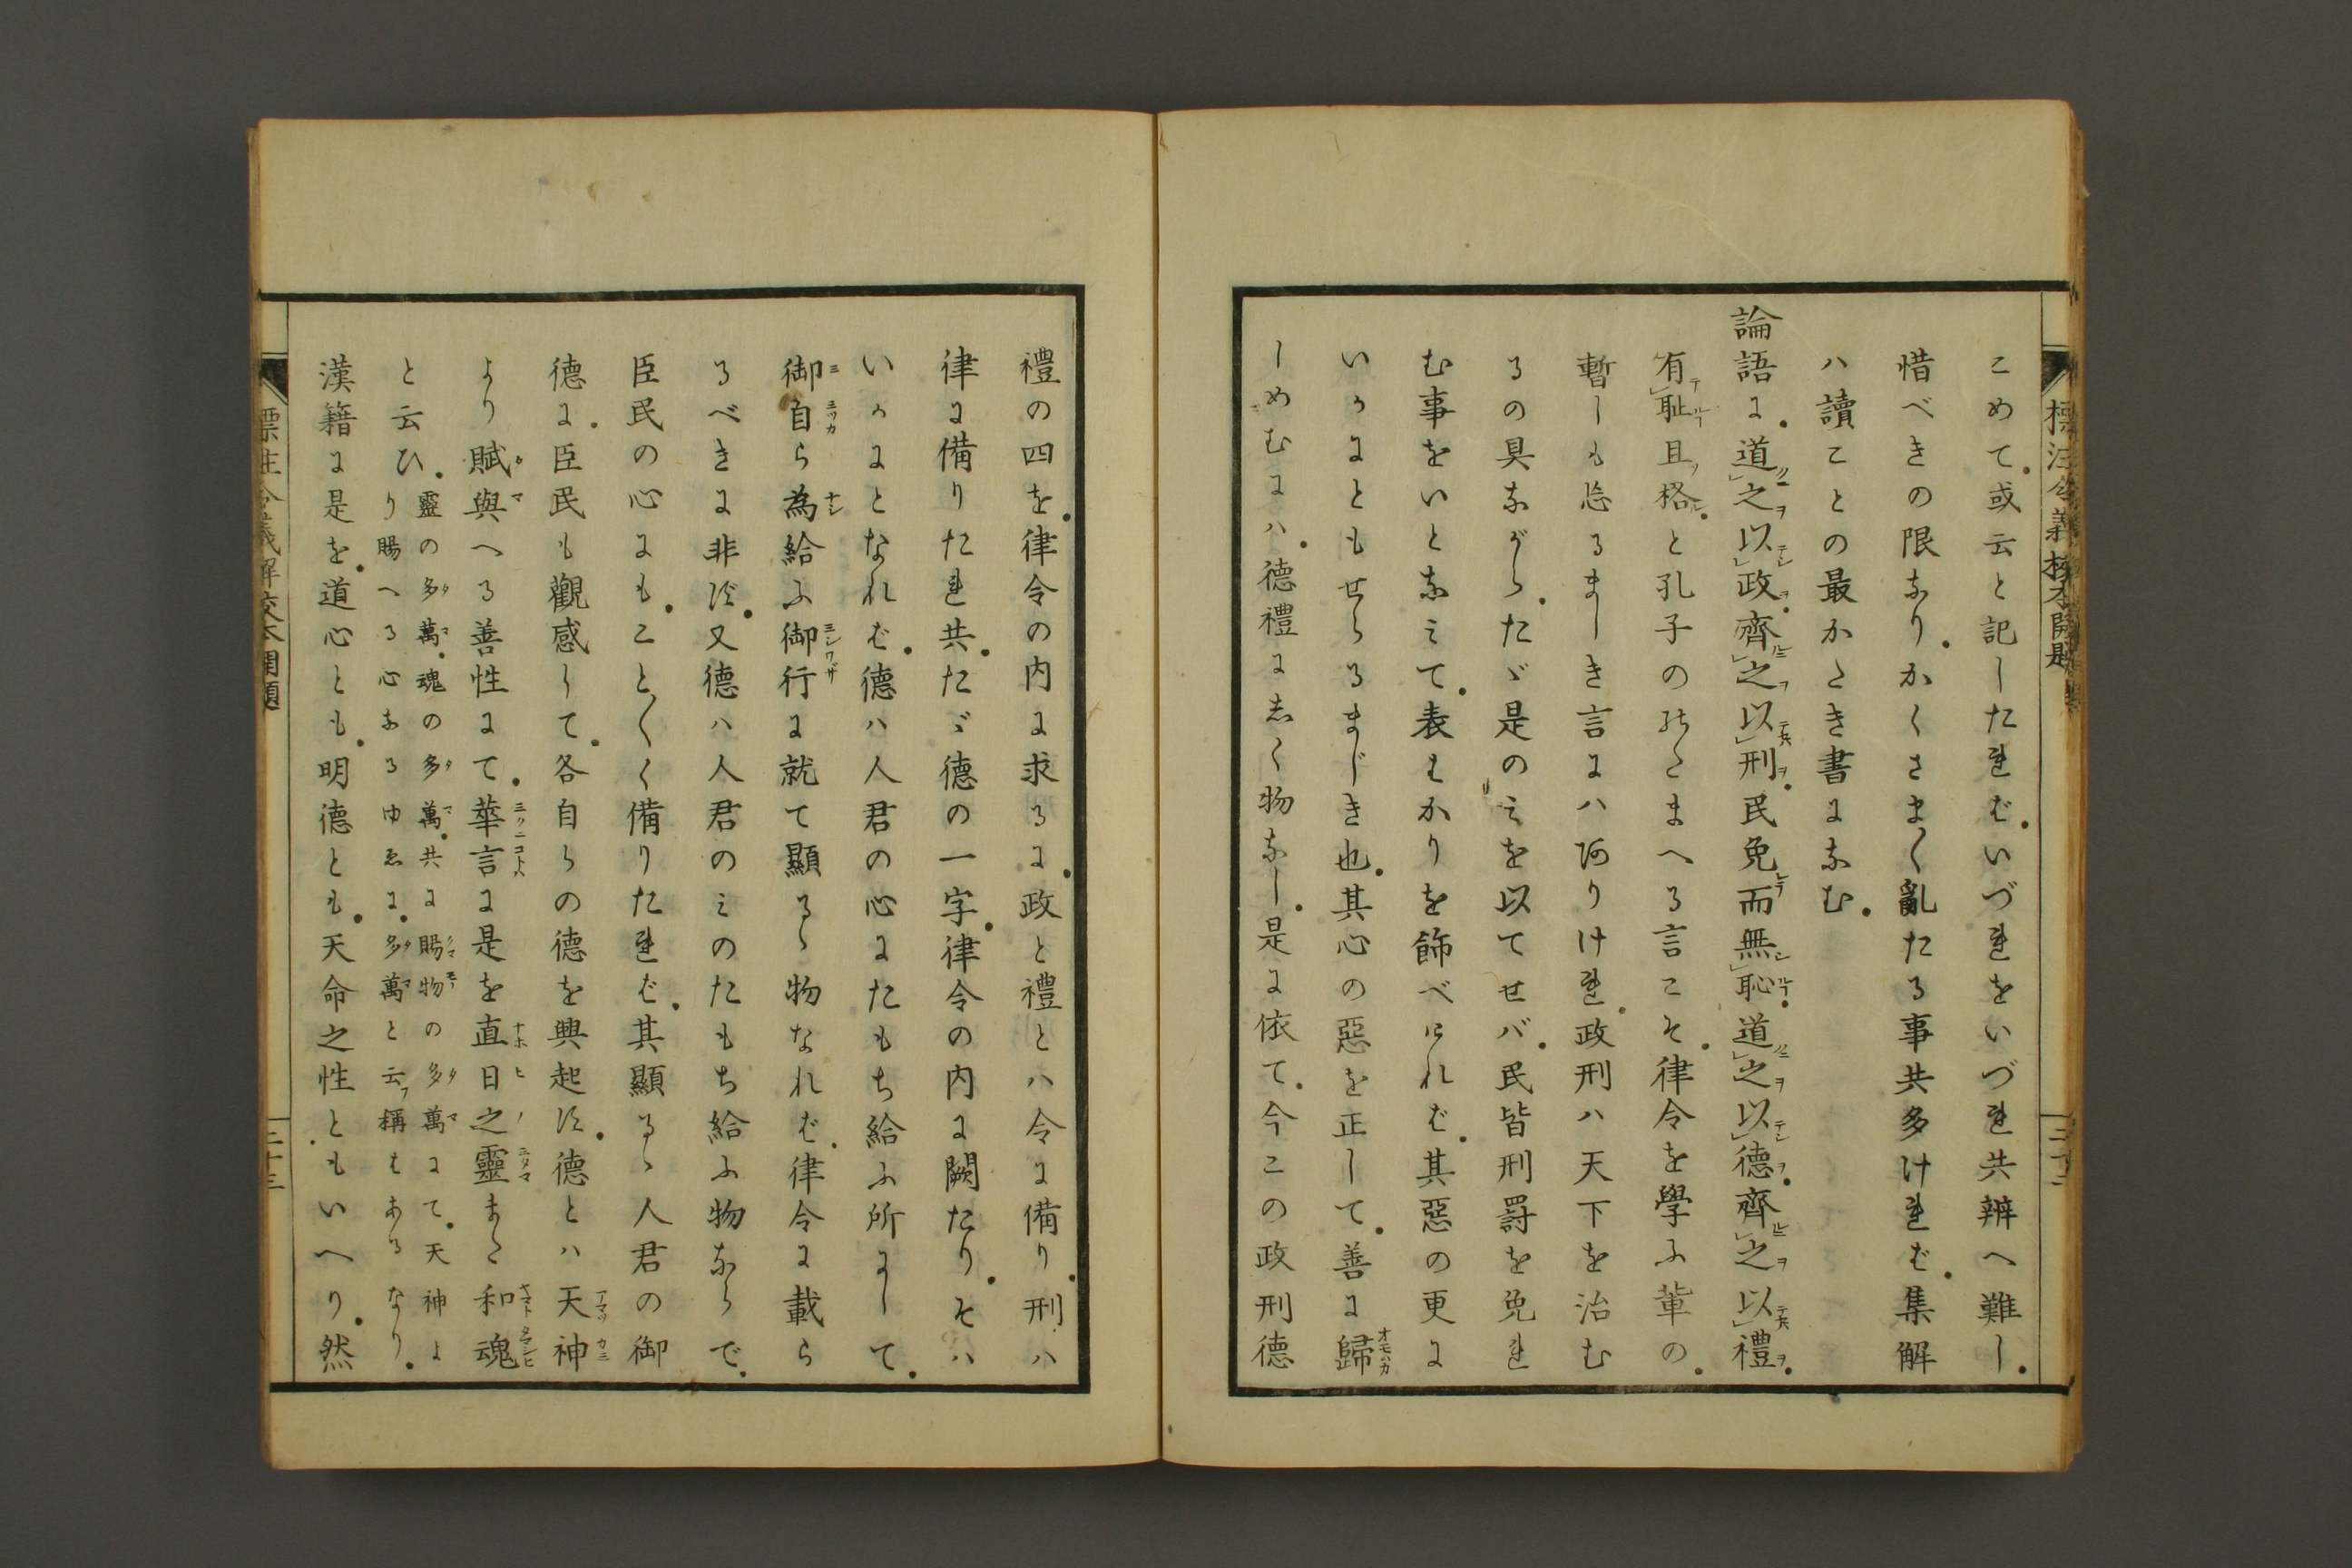 標注令義解校本開題
こめて。或云と記したれば。いづれをいづれ共辨へ難し。
惜べきの限なり。かくさま〲亂たる事共多ければ。集解
ハ讀ことの最かたき書になむ。
論語に。道之以政。齊之以刑。民免而無恥。道之以德。齊之以禮。
有恥且格。と孔子のゝたまへる言こそ。律令を學ふ輩の。
暫しも怠るましき言にハ阿りけれ。政刑ハ天下を治む
るの具ながら。たゞ是のみを以てせバ。民皆刑罰を免れ
む事をいとなみて。表はかりを飾べければ。其惡の更に
いかにともせらるまじき也。其心の惡を正して。善に歸
しめむにハ。德禮にしく物なし。是に依て。今この政刑德
禮の四を。律令の内に求るに。政と禮とハ令に備り。刑ハ
律に備りたれ共。たゞ德の一字。律令の内に闕たり。そハ
いかにとなれば。德ハ人君の心にたもち給ふ所にして。
御自ら為給ふ御行に就て顯るゝ物なれば。律令に載ら
るべきに非ず。又德ハ人君のみのたもち給ふ物ならで。
臣民の心にも。こと〲く備りたれば。其顯るゝ人君の御
德に。臣民も觀感して。各自らの德を興起す。德とハ天神
より賦與へる善性にて。華言に是を直日之靈また和魂
と云ひ。靈の多萬。魂の多萬。共に賜物の多萬にて。天神よ
り賜へる心あるゆゑに。多萬と云フ稱はあるなり。
漢籍に是を。道心とも。明德とも。天命之性ともいへり。然
標注令義解校本開題
二十三